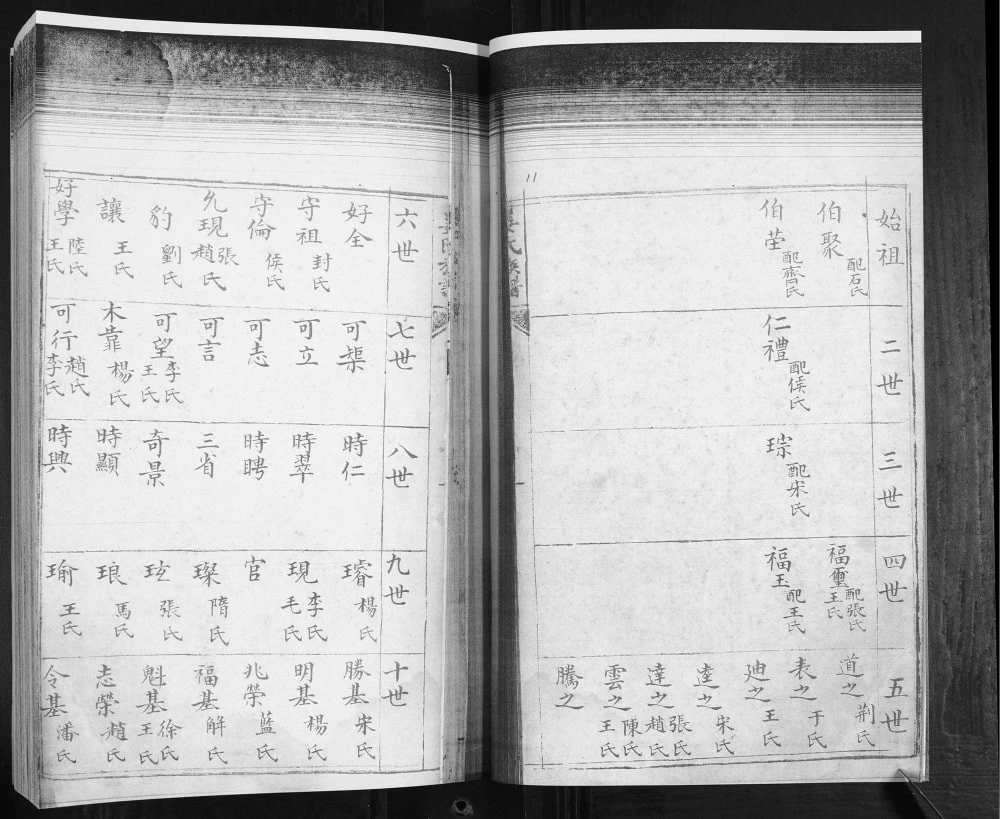 11
始祖
伯聚 配石氏
伯莹 配齊氏
二世
仁禮 配侯氏
三世
琮 配宋氏
四世
福璽 配張氏 王氏
福玉 配王氏
五世
道之 荆氏
表之 于氏
迪之 王氏
逵之 宋氏
達之 張氏 趙氏
雲之 陳氏 王氏
騰之
姜氏族譜
六世
好全
守祖 封氏
守倫 侯氏
允現 張 趙氏
豹 劉氏
讓 王氏
好學 陸氏 王氏
七世
可榘
可立
可志
可言
可望 李氏 王氏
木靠 楊氏
可行 趙氏 李氏
八世
時仁
時翠
時聘
三省
奇景
時顯
時興
九世
璿 楊氏
現 李氏 毛氏
官
璨 隋氏
玹 張氏
琅 馬氏
瑜 王氏
十世
勝基 宋氏
明基 楊氏
兆榮 藍氏
福基 解氏
魁基 徐氏 王氏
志榮 趙氏
令基 潘氏